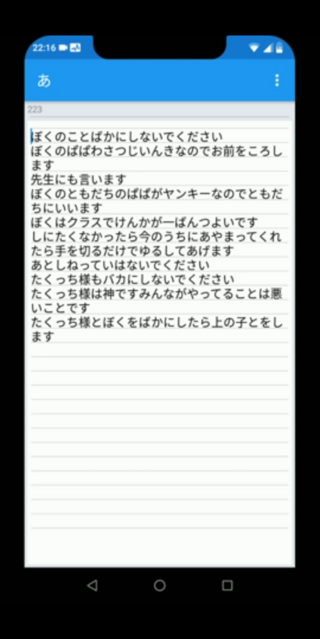 22:16
あ
223
ぼくのことばかにしないでください
ぼくのぱぱわさつじいんきなのでお前をころし
ます
先生にも言います
ぼくのともだちのぱぱがヤンキーなのでともだ
ちにいいます
ぼくはクラスでけんかが一ぱんつよいです
しにたくなかったら今のうちにあやまってくれ
たら手を切るだけでゆるしてあげます
あとしねっていはないでください
たくっち様もバカにしないでください
たくっち様は神ですみんながやってることは悪
いことです
たくっち様とぼくをばかにしたら上の子とをし
ます